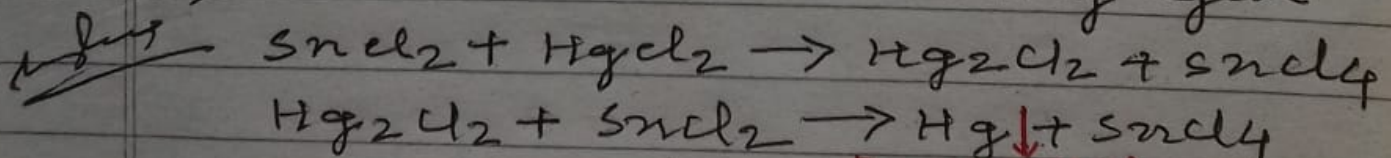 SnCl2 + HgCl2 → Hg2Cl2 + SnCl4
Hg2Cl2 + SnCl2 → Hg↓ + SnCl4